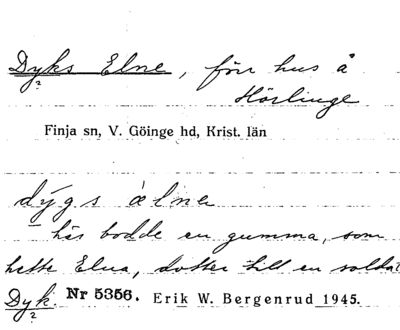 Dyks Elne, förr hus å
?
Hörlinge
Finja sn, V. Göinge hd, Krist. län
dýgs ælner
– här bodde en gumma, som
hette Elna, dotter till en soldat
Dyk. Nr 5356. Erik W. Bergenrud 1945.
?